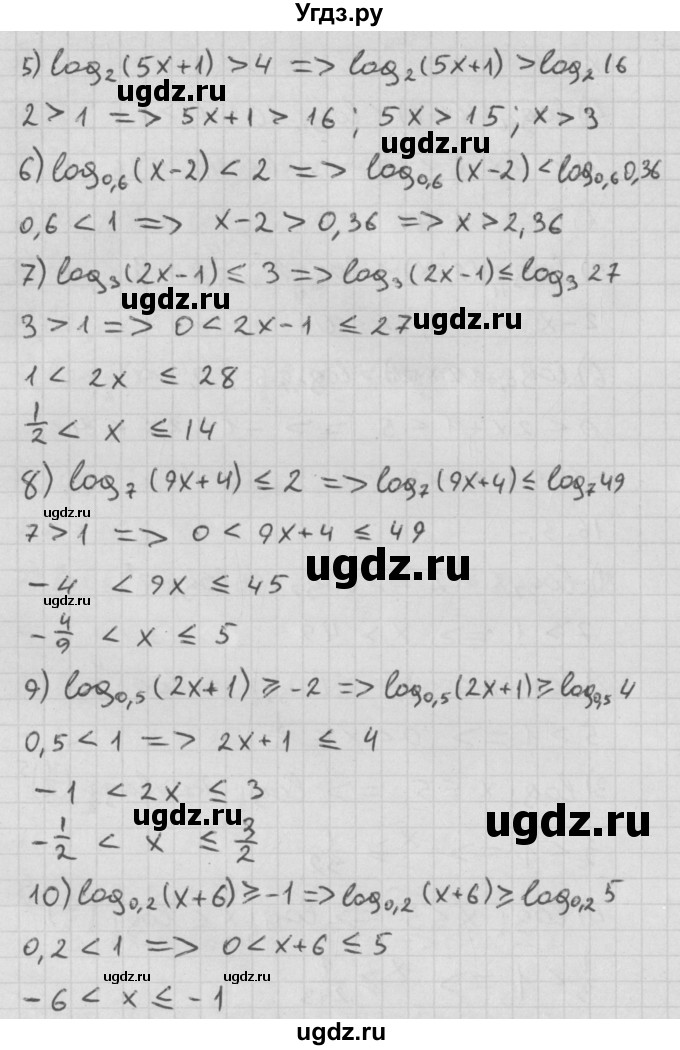 Угдз.ру
5) log₂(5x+1) > 4 => log₂(5x+1) > log₂ 16
ugdz.ru
2 > 1 => 5x+1 > 16; 5x > 15; x > 3
ugdz.ru
6) log₀,₆(x-2) < 2 => log₀,₆(x-2) < log₀,₆ 0,36
0,6 < 1 => x-2 > 0,36 => x > 2,36
7) log₃(2x-1) ≤ 3 => log₃(2x-1) ≤ log₃ 27
ugdz.ru
3 > 1 => 0 < 2x-1 ≤ 27
ugdz.ru
1 < 2x ≤ 28
1/2 < x ≤ 14
8) log₇(9x+4) ≤ 2 => log₇(9x+4) ≤ log₇ 49
ugdz.ru
7 > 1 => 0 < 9x+4 ≤ 49
ugdz.ru
-4 < 9x ≤ 45
ugdz.ru
-4/9 < x ≤ 5
9) log₀,₅(2x+1) ≥ -2 => log₀,₅(2x+1) ≥ log₀,₅ 4
0,5 < 1 => 2x+1 ≤ 4
-1 < 2x ≤ 3
ugdz.ru
ugdz.ru
-1/2 < x ≤ 3/2
10) log₀,₂(x+6) ≥ -1 => log₀,₂(x+6) ≥ log₀,₂ 5
0,2 < 1 => 0 < x+6 ≤ 5
ugdz.ru
ugdz.ru
-6 < x ≤ -1
ugdz.ru